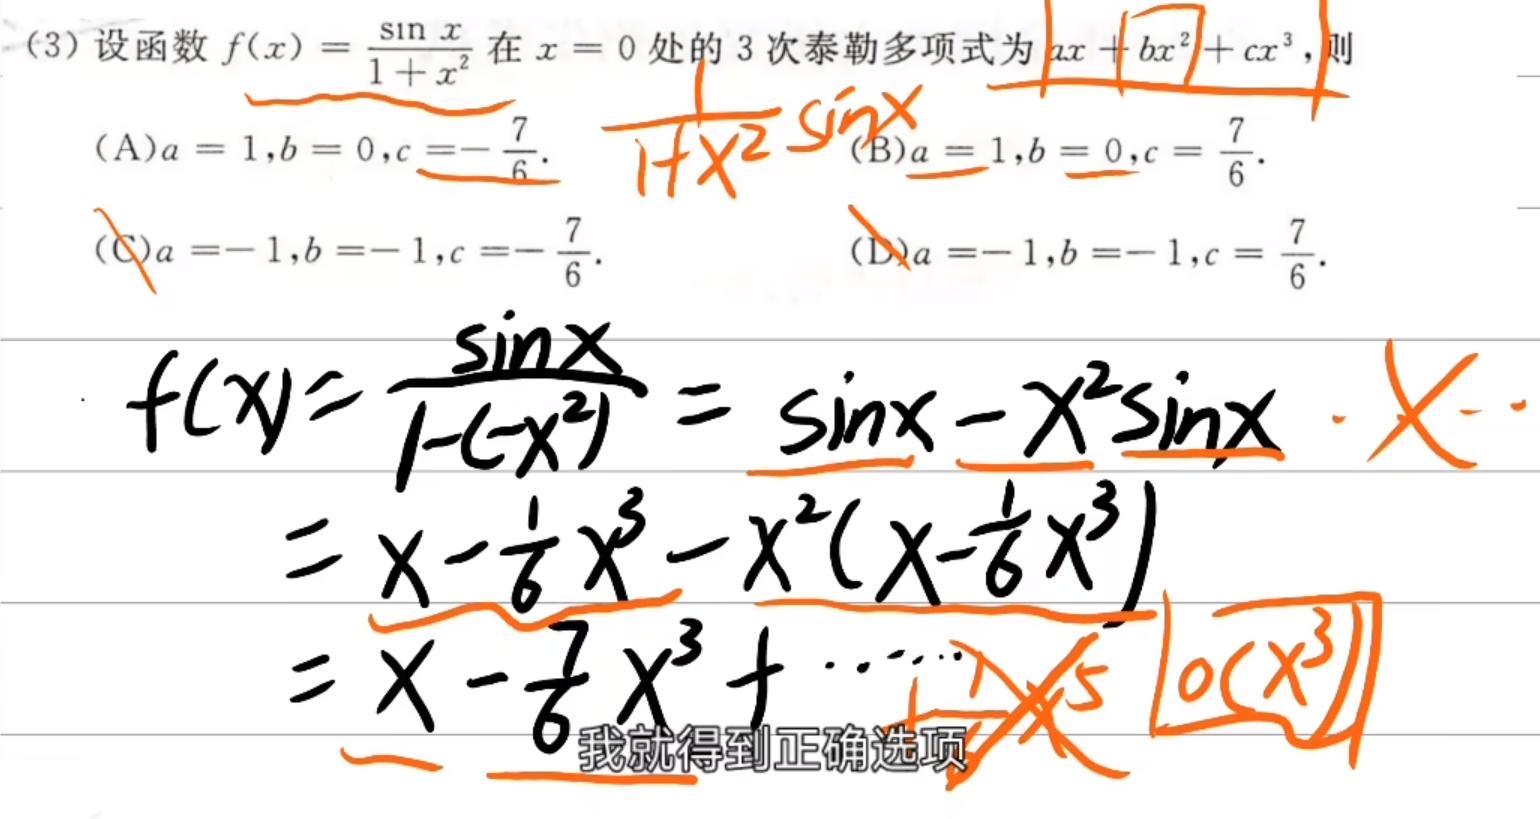 (3) 设函数 f(x) = \frac{sin x}{1 + x²} 在 x = 0 处的 3 次泰勒多项式为 ax + bx² + cx³, 则
\frac{1}{1+x²} sinx
(A)a = 1,b = 0,c =- \frac{7}{6}. (B)a = 1,b = 0,c = \frac{7}{6}.
(C)a =- 1,b =- 1,c =- \frac{7}{6}. (D)a =- 1,b =- 1,c = \frac{7}{6}.
f(x) = \frac{sinx}{1-(-x²)} = sinx - x²sinx
= x - \frac{1}{6}x³ - x²(x - \frac{1}{6}x³)
= x - \frac{7}{6}x³ + ······ o(x³)
我就得到正确选项